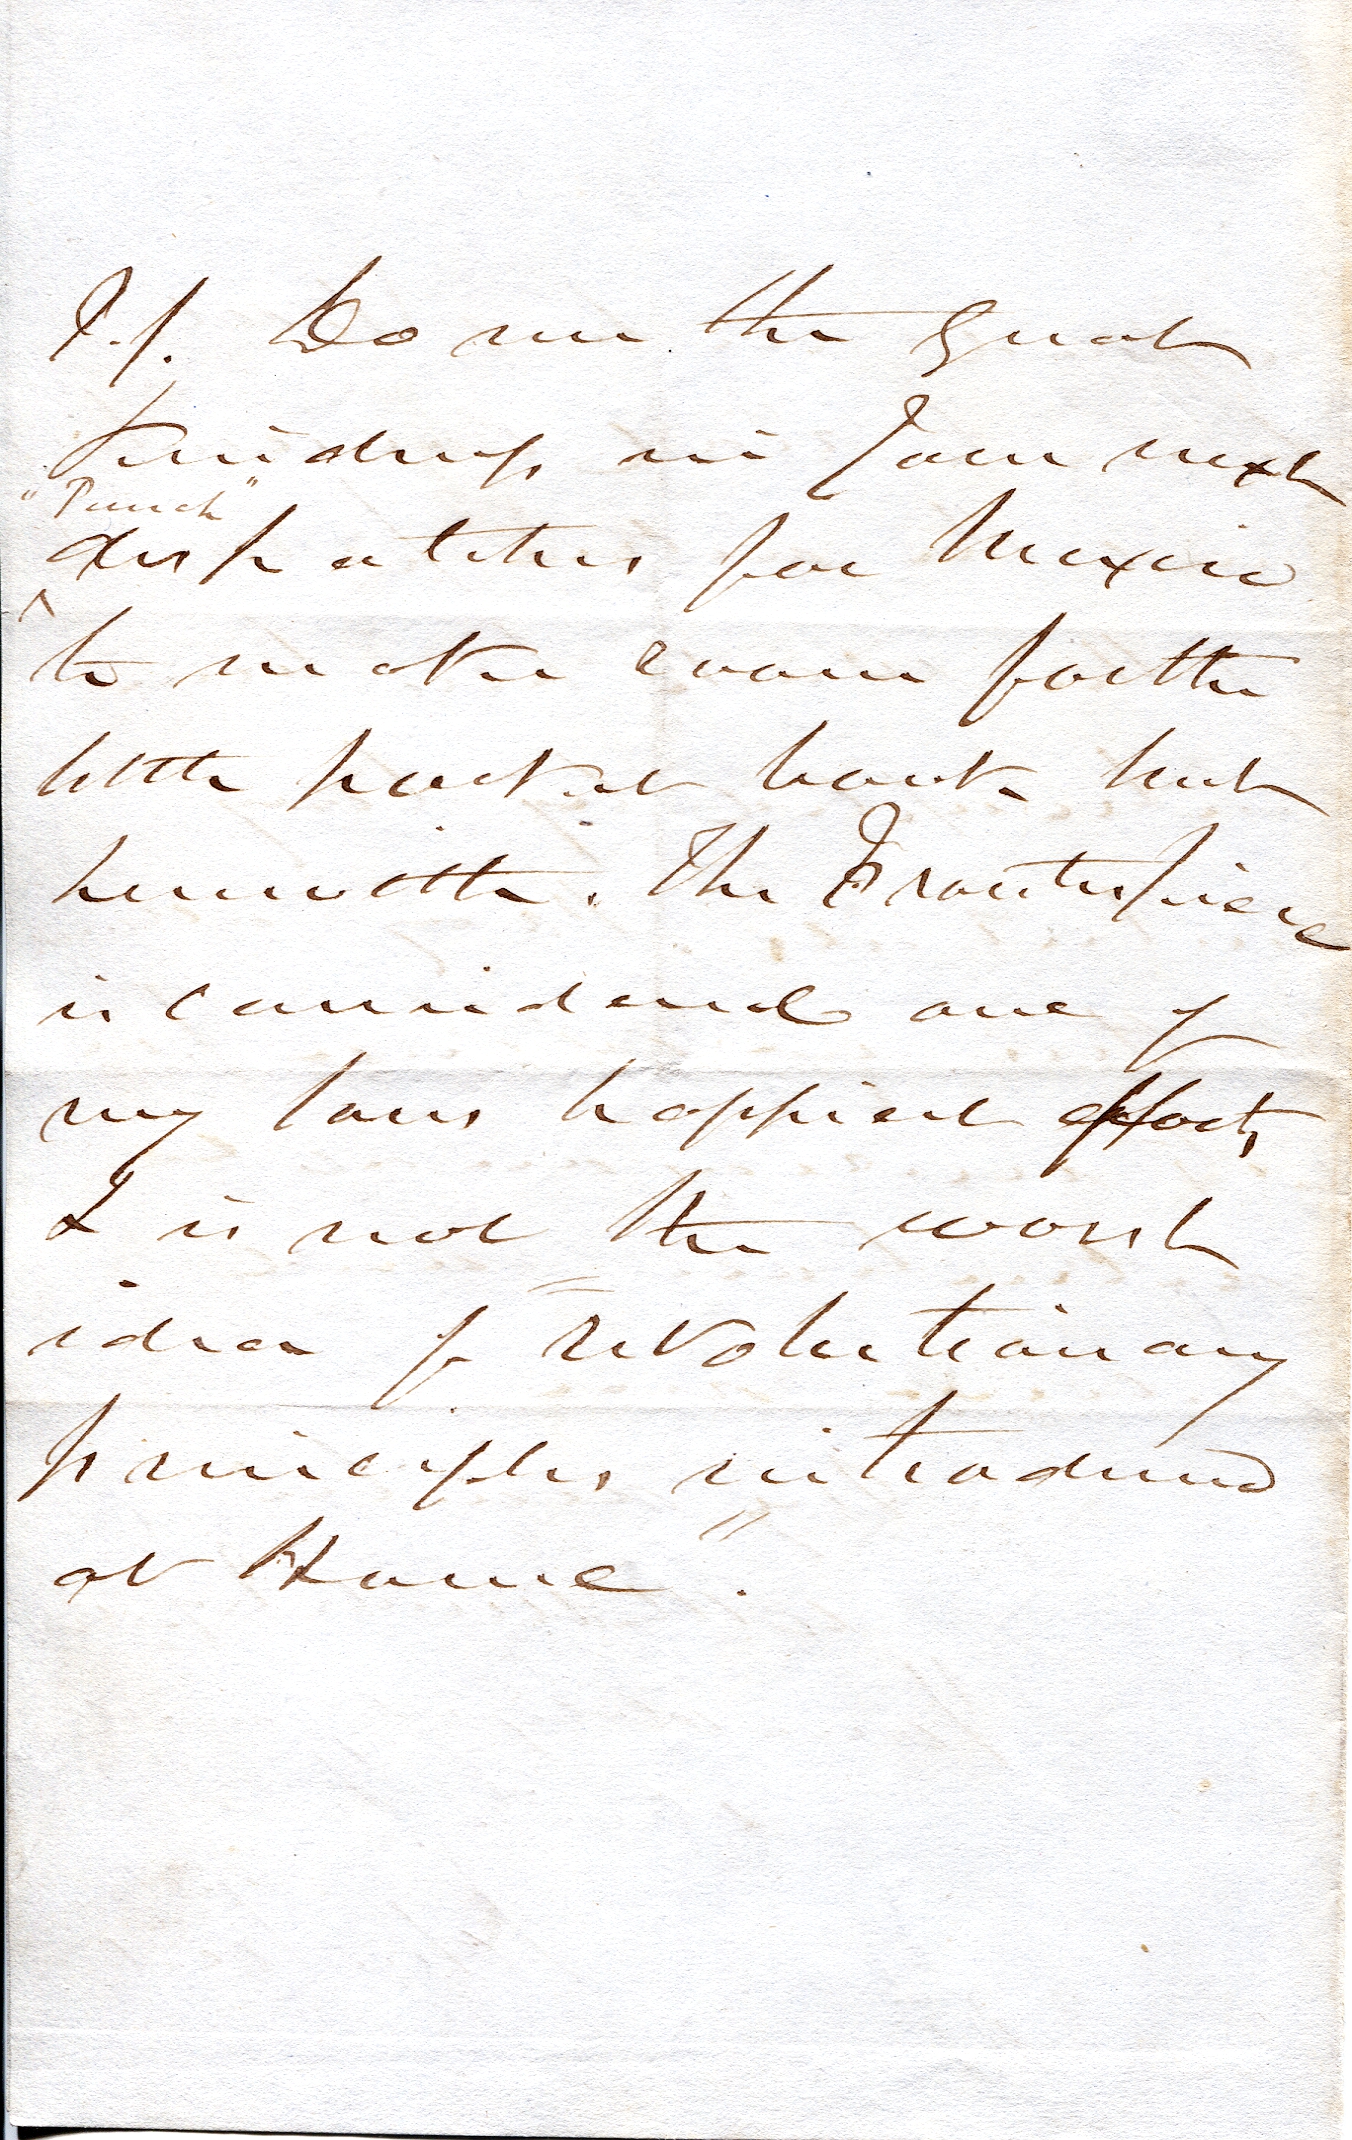 P.S. Do me the great
kindness in your next
"Punch"
dispatches for Mexico
to make room for the
little pocket book sent
herewith. The Frontispiece
is considered one of
my sons happiest efforts,
& is not the worst
idea of "revolutionary
principles introduced
at Home".